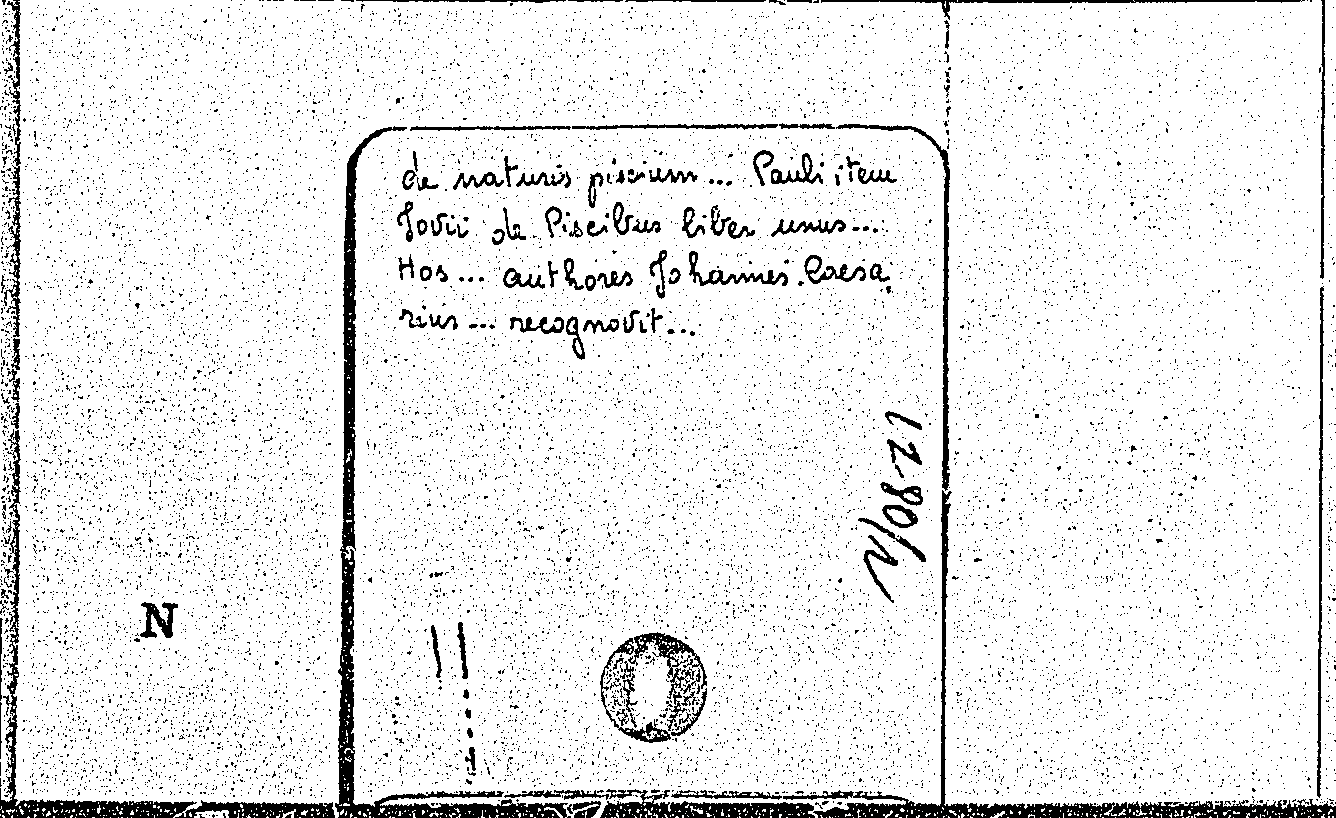 de naturis piscium... Pauli item
Jovii de Piscibus liber unus...
Hos... authores Johannes Caesa-
rius... recognovit...
1280/1
N